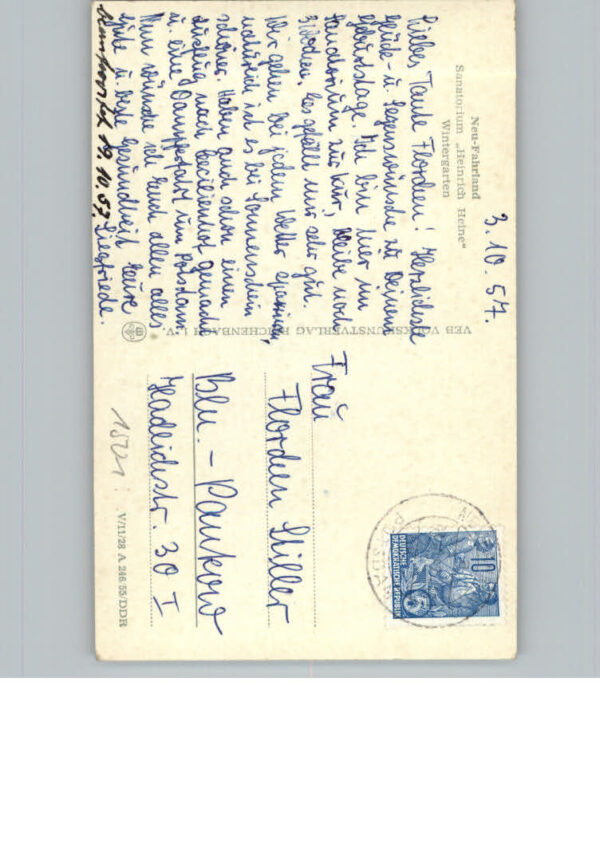 Neu-Fahrland
Sanatorium „Heinrich Heine“
Wintergarten
3. 10. 57.
Liebes Tante Thordien! Herzlichste
Glück- u. Segenswünsche zu Deinem
Geburtstage. Ich bin hier im
Sanatorium zur Kur, bleibe noch
3 Wochen, es gefällt mir sehr gut.
Wir gehen bei jedem Wetter spazieren,
natürlich ist es bei Sonnenschein
schöner. Haben auch schon einen
Ausflug nach Cecilienhof gemacht
u. eine Dampferfahrt um Potsdam.
Nun wünsche ich Euch allen alles
Gute u. beste Gesundheit Eure
Siegfriede.
19. 10. 57.
VEB VOLKSKUNSTVERLAG REICHENBACH I. V.
Frau
Stiller
Bln. - Pankow
Hadlichstr. 30 I
1521
V/11/28 A 246/55/DDR
DEUTSCHE
DEMOKRATISCHE REPUBLIK
10